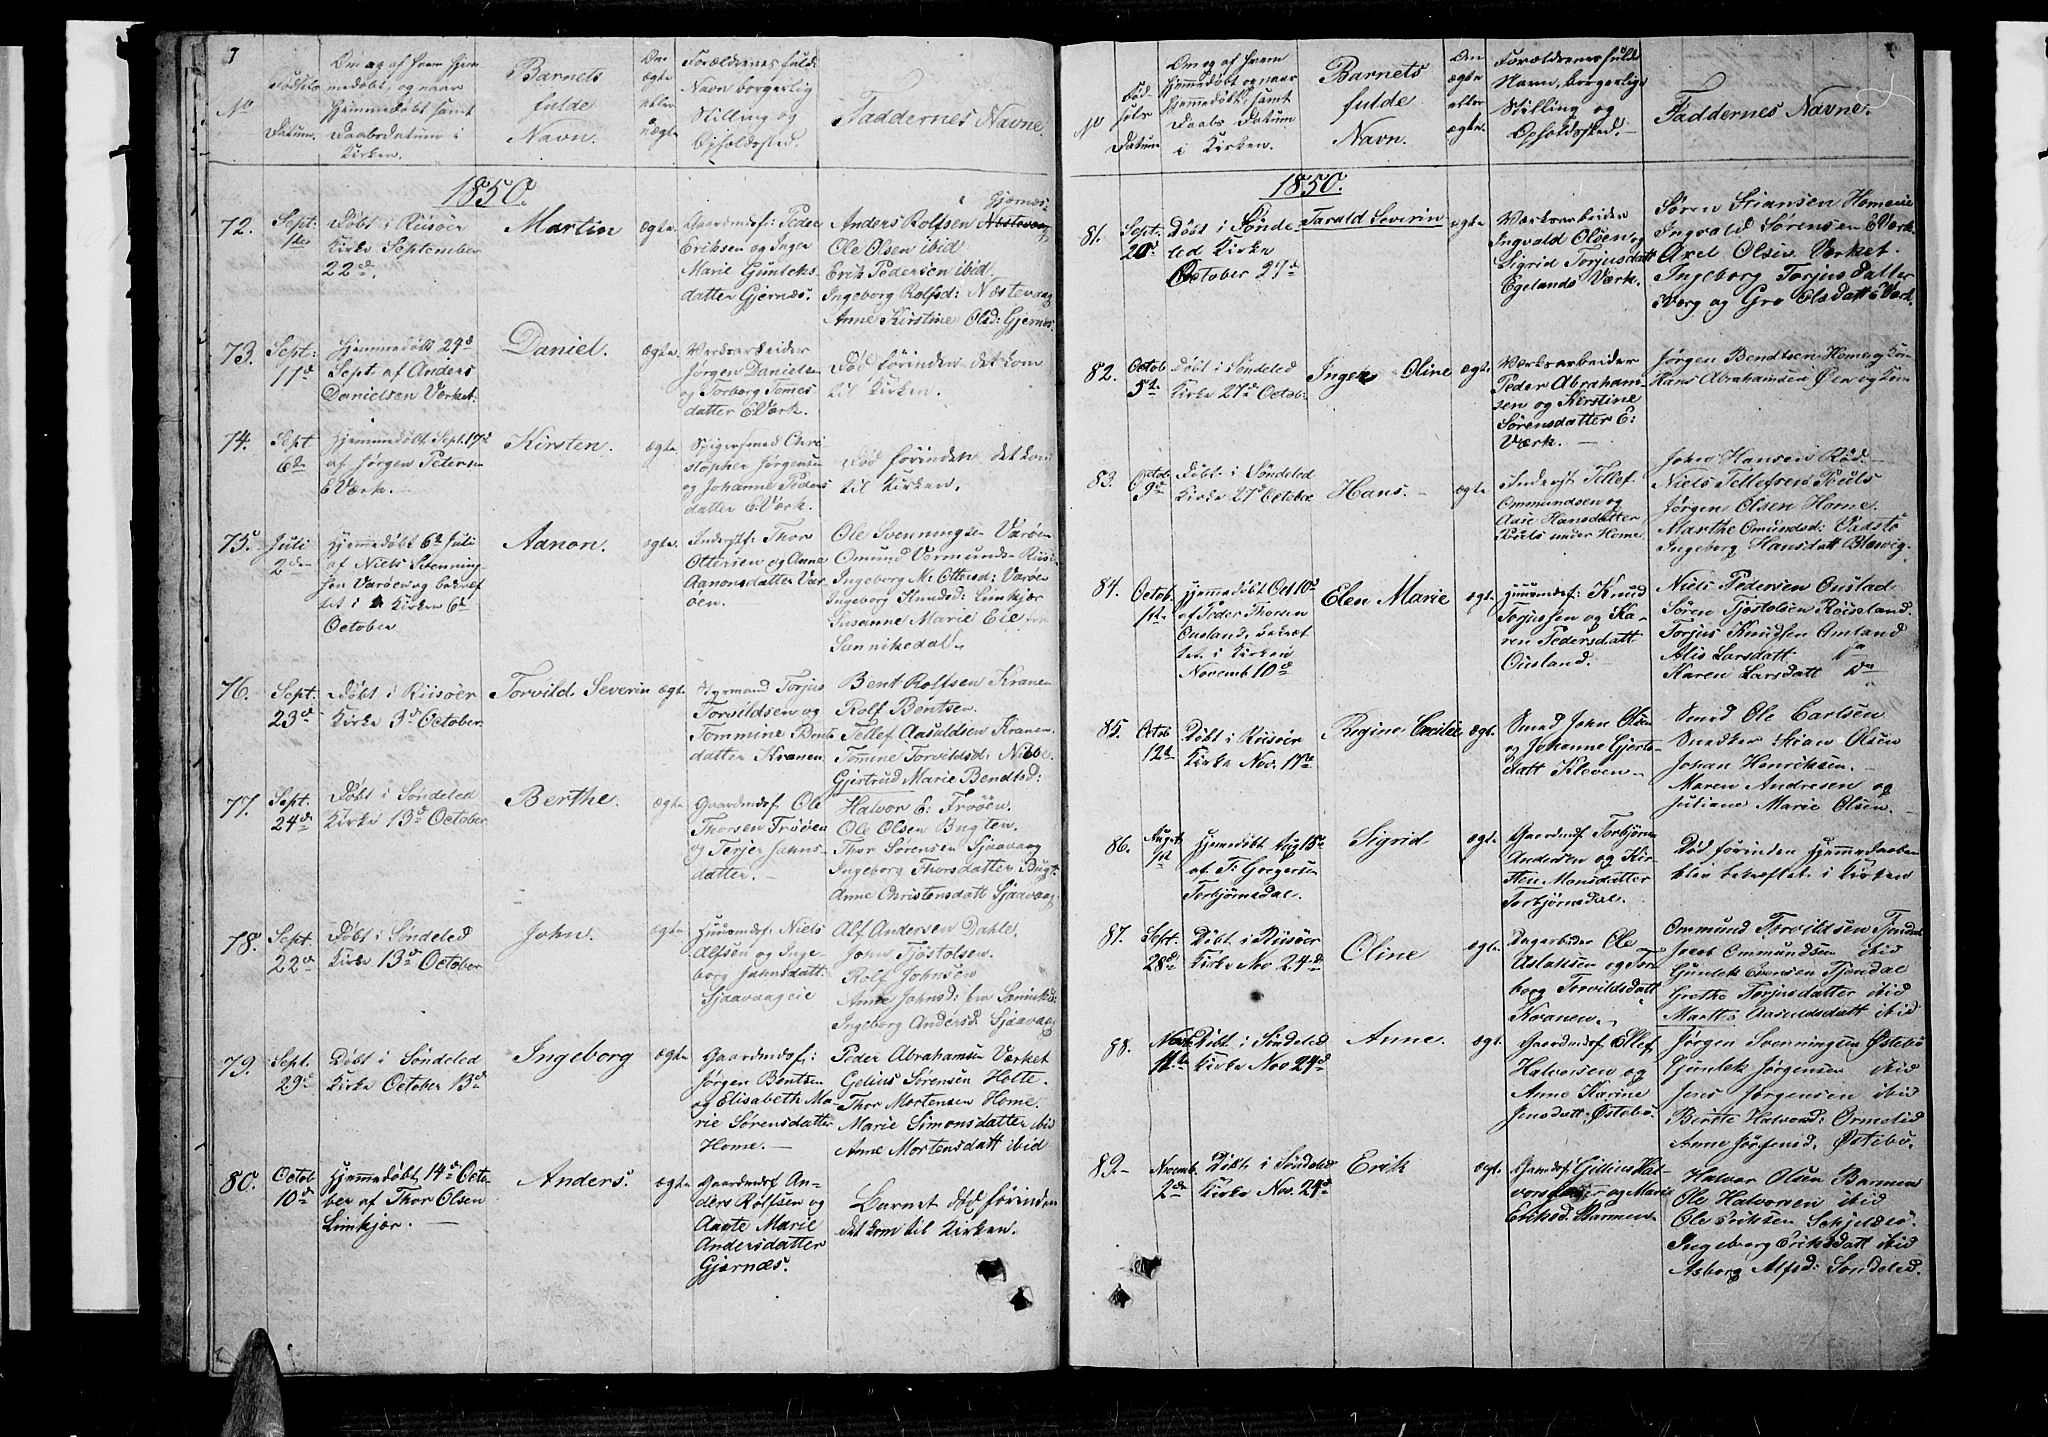 No
Fødsels
Datum.
Om og af hvem hjem
medøbt, og naar
hjemmedøbt samt
Daabsdatum i
Kirken.
Barnets
fulde
Navn.
Om
ægte
eller
uægte
Forældrenes fulde
Navn borgerlig
Stilling og
Opholdssted.
Faddernes Navne.
1850.
72.
Sept:
Døbt i Riisøer
Kirke September
22d.
Martin
ægte.
Gaardmdf: Peder
Eriksen og Inger
Marie Gunleks
datter Gjernæs.
Gjernæs
Anders Rolfsen Næstevaag
Ole Olsen ibid
Erik Pedersen ibid
Ingeborg Rolfsd: Næstevaag
Anne Kirstine Olsd: Gjernæs.
73.
Sept:
17d
Hjemmedøbt 29d
Sept. af Anders
Danielsen Værket.
Daniel.
ægte.
Værksarbeider
Jørgen Danielsen
og Torborg Tomes
datter E. Værk.
Død førinden det kom
til Kirken.
74.
Sept
6te
Hjemmedøbt Sept. 17d
af Jørgen Petersen
E Værk.
Kirsten.
ægte.
Spigersmed Chri
stopher Jørgensen
og Johanne Peders
datter E. Værk.
Død førinden det kom
til Kirken.
75.
Juli
2den
Hjemmedøbt 6te Juli
af Niels Svenning
sen Varøen og bekræf
tet i Kirken 6te
October
Aanon.
ægte.
Inderstf: Thor
Ottersen og Anne
Aanonsdatter Var
øen.
Ole Svenningsen Varøen
Omund Vormunds. Riisø
Ingeborg M. Ottersd: Varøen
Ingeborg Knudsd: Limkjær
Susanne Marie Eie
Sannikedal.
76.
Sept.
23d
Døbt i Riisøer
Kirke 3d October
Torvild Severin
ægte.
Torjus
Torvildsen og
Tommine Bents
datter Kranen
Bent Rolfsen Kranen
Rolf Bentsen.
Tellef Aasuldsen Kranen
Tomine Torvildsd:
Gjertrud Marie Bendtsd:
77.
Sept.
24d
Døbt i Søndeled
Kirke 13d October
Berthe.
ægte
Gaardmdf Ole
Thorsen Frøøen
og Terjer Jahns-
datter.
Halvor E: Frøøen.
Ole Olsen Bugten.
Thor Sørensen Sjaavaag
Ingeborg Thorsdatter Bugt.
Anne Christensdatt Sjaavaag
78.
Sept.
22d
Døbt i Søndeled
Kirke 13d October
John.
ægte.
Huusmdf: Niels
Alfsen og Inge
borg Jahnsdatt:
Sjaavaageie
Alf Andersen Dahle.
John Tjøstolsen.
Rolf Johnsen
Anne Jahnsd:
Ingeborg Andersd. Sjaavaag
79.
Sept.
29d
Døbt i Søndeled
Kirke October 13d
Ingeborg
ægte
Gaardmdf:
Jørgen Bentsen
og Elisabeth Ma-
rie Sørensdatter
Home.
Peder Abrahamsen Værket
Gelius Sørensen Holte.
Thor Mortensen Home.
Marie Simonsdatter ibid
Anne Mortensdatt ibid
80.
Octob
10d
Hjemmedøbt 14d Octo-
ber af Thor Olsen
Limkjær.
Anders.
ægte
Gaardmdf An-
ders Rolfsen og
Aante Marie
Andersdatter
Gjernæs.
Barnet død førinden
det kom til Kirken.
No
Fød-
sels
Datum
Om og af hvem
hjemmedøbt og naar
hjemmedøbt, samt
Daabs Datum
i Kirken.
Barnets
fulde
Navn.
Om
ægte
eller
uægte.
Forældrenes fulde
Navn, borgerlige
Stilling og
Opholdssted.
Faddernes Navne.
1850.
81.
Sept.
20d
Døbt i Sønde
led Kirke
October 27d
Tarald Severin
ægte
Værksarbeider
Ingvald Olsen og
Sigrid Torjusdatt
Egelands Værk.
Søren Stiansen Homeeie
Ingvald Sørensen E Værk.
Axel Olsen Værket.
Ingeborg Torjusdatter
og Gro Olsdatt E Værk.
82.
Octob
5te
Døbt i Søndeled
Kirke 27d Octob:
Inger Oline
ægte
Værksarbeider
Peder Abraham-
sen og Kirstine
Sørensdatter E:
Værk.
Jørgen Bendtsen Home og Kone
Hans Abrahamsen Øen og Kone
83.
Octob
9d
Døbt i Søndeled
Kirke 27d October
Hans.
ægte
Inderst Tellef
Ommundsen og
Aase Hansdatter
under Home.
John Hansen Rød.
Niels Tellefsen
Jørgen Olsen Home.
Marthe Omundsd:
Ingeborg Hansdatt
84.
Octob
1ste
Hjemmedøbt Oct 10d
af Peder Thorsen
Ousland, bekræf
tet i Kirken
Novemb 10d
Elen Marie
ægte
Huusmdf: Knud
Torjussen og Ka-
ren Pedersdatt
Ousland.
Niels Pedersen Ousland
Søren Tjøstolsen Røiseland.
Torjus Knudsen Amland
Alis Larsdatt Do
Karen Larsdatt Do
85.
Octob
12d
Døbt i Riisøer
Kirke Nov. 17de
Regine Cecilie
ægte.
Smed John Olsen
og Johanne Gjerts-
datt Kleven
Smed Ole Carlsen
Snedker Stian Olsen
Johan Henriksen.
Maren Andresen og
Juliane Marie Olsen.
86.
August
1ste
Hjemmedøbt Aug 18de
af T: Gregersen
Torbjørnsdal.
Sigrid
ægte.
Gaardmdf Torbjørn
Andersen og Kir
sten Monsdatter
Torbjørnsdal.
Død førinden Hjemmedaaben
blev bekræftet i Kirken
87.
Sept.
28d
Døbt i Riisøer
Kirke Nov 24d
Oline
ægte.
Ole
Aslaksen og Tor
borg Torvildsdatt
Kranen.
Ommund Torvildsen Tjendal
Jacob Ommundsen ibid
Gunlek Evensen Tjendal
Grethe Torjusdatter ibid
Marthe Aasuldsdatt ibid
88.
Novb
11te
Døbt i Søndeled
Kirke Nov 24d
Anne.
ægt.
Gaardmdf Ellef
Halvorsen og
Anne Karine
Jensdatt Østebø.
Jørgen Svenningsen Østebø
Gunlek Jørgensen ibid
Jens Jørgensen ibid
Birthe Halvorsd: Ormelid
Anne Jørgensd. Østebø.
89.
Novemb.
2den
Døbt i Søndeled
Kirke Nov. 24d
Erik
ægt.
Gaardmdf Gelius Hal-
vorsen og Marie
Eriksd. Barmen.
Halvor Olsen Barmen
Ole Halvorsen ibid
Ole Eriksen
Ingeborg Eriksdatt ibid
Asborg Alfsd: Søndeled.